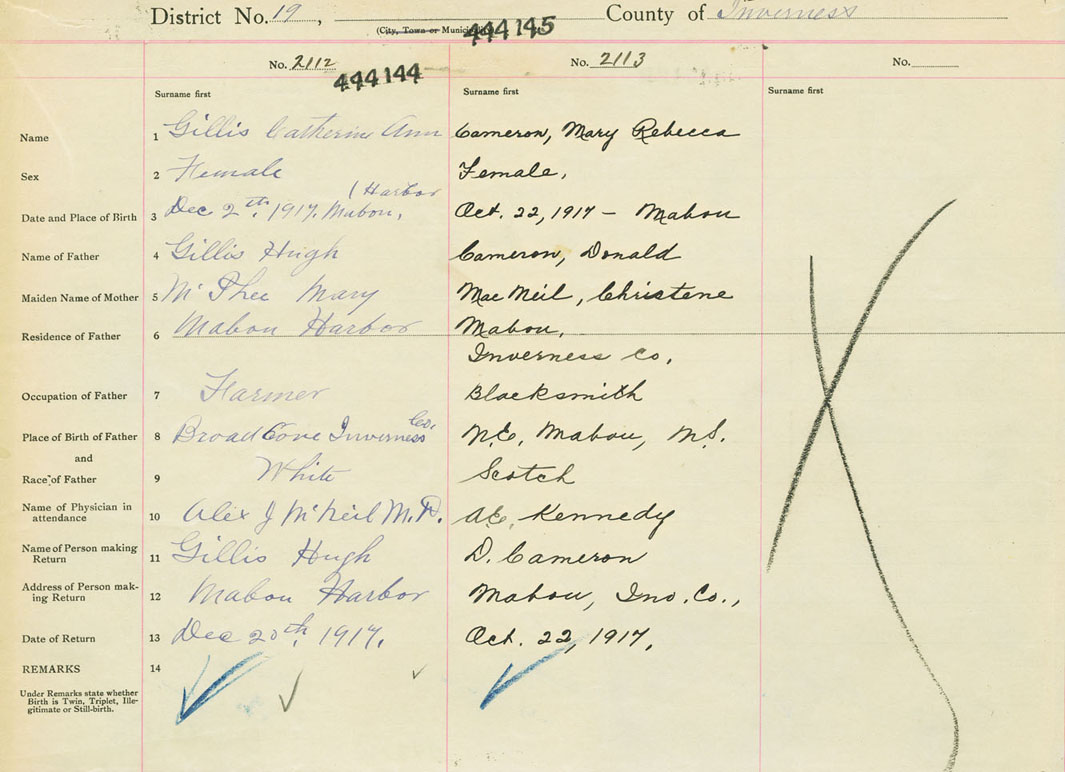 District No. 19, County of Inverness
(City, Town or Municipality)
444145
No. 2112 No. 2113 No.
444144
Surname first Surname first Surname first
Name 1 Gillis Catherine Ann Cameron, Mary Rebecca
Sex 2 Female Female,
(Harbor
Date and Place of Birth 3 Dec 2th, 1917. Mabou, Oct. 22, 1917 – Mabou
Name of Father 4 Gillis Hugh Cameron, Donald
Maiden Name of Mother 5 McPhee Mary MacNeil, Christene
Residence of Father 6 Mabou Harbor Mabou,
Inverness Co,
Occupation of Father 7 Farmer Blacksmith
Co.
Place of Birth of Father 8 Broad Cove Inverness Mabou, N.S.
and
Race of Father 9 White Scotch
Name of Physician in
attendance 10 Alex J McNeil M.D. Kennedy
Name of Person making
Return 11 Gillis Hugh D. Cameron
Address of Person mak-
ing Return 12 Mabou Harbor Mabou, Inv. Co.,
Date of Return 13 Dec 20th, 1917. Oct. 22, 1917.
REMARKS 14
Under Remarks state whether
Birth is Twin, Triplet, Ille-
gitimate or Still-birth.